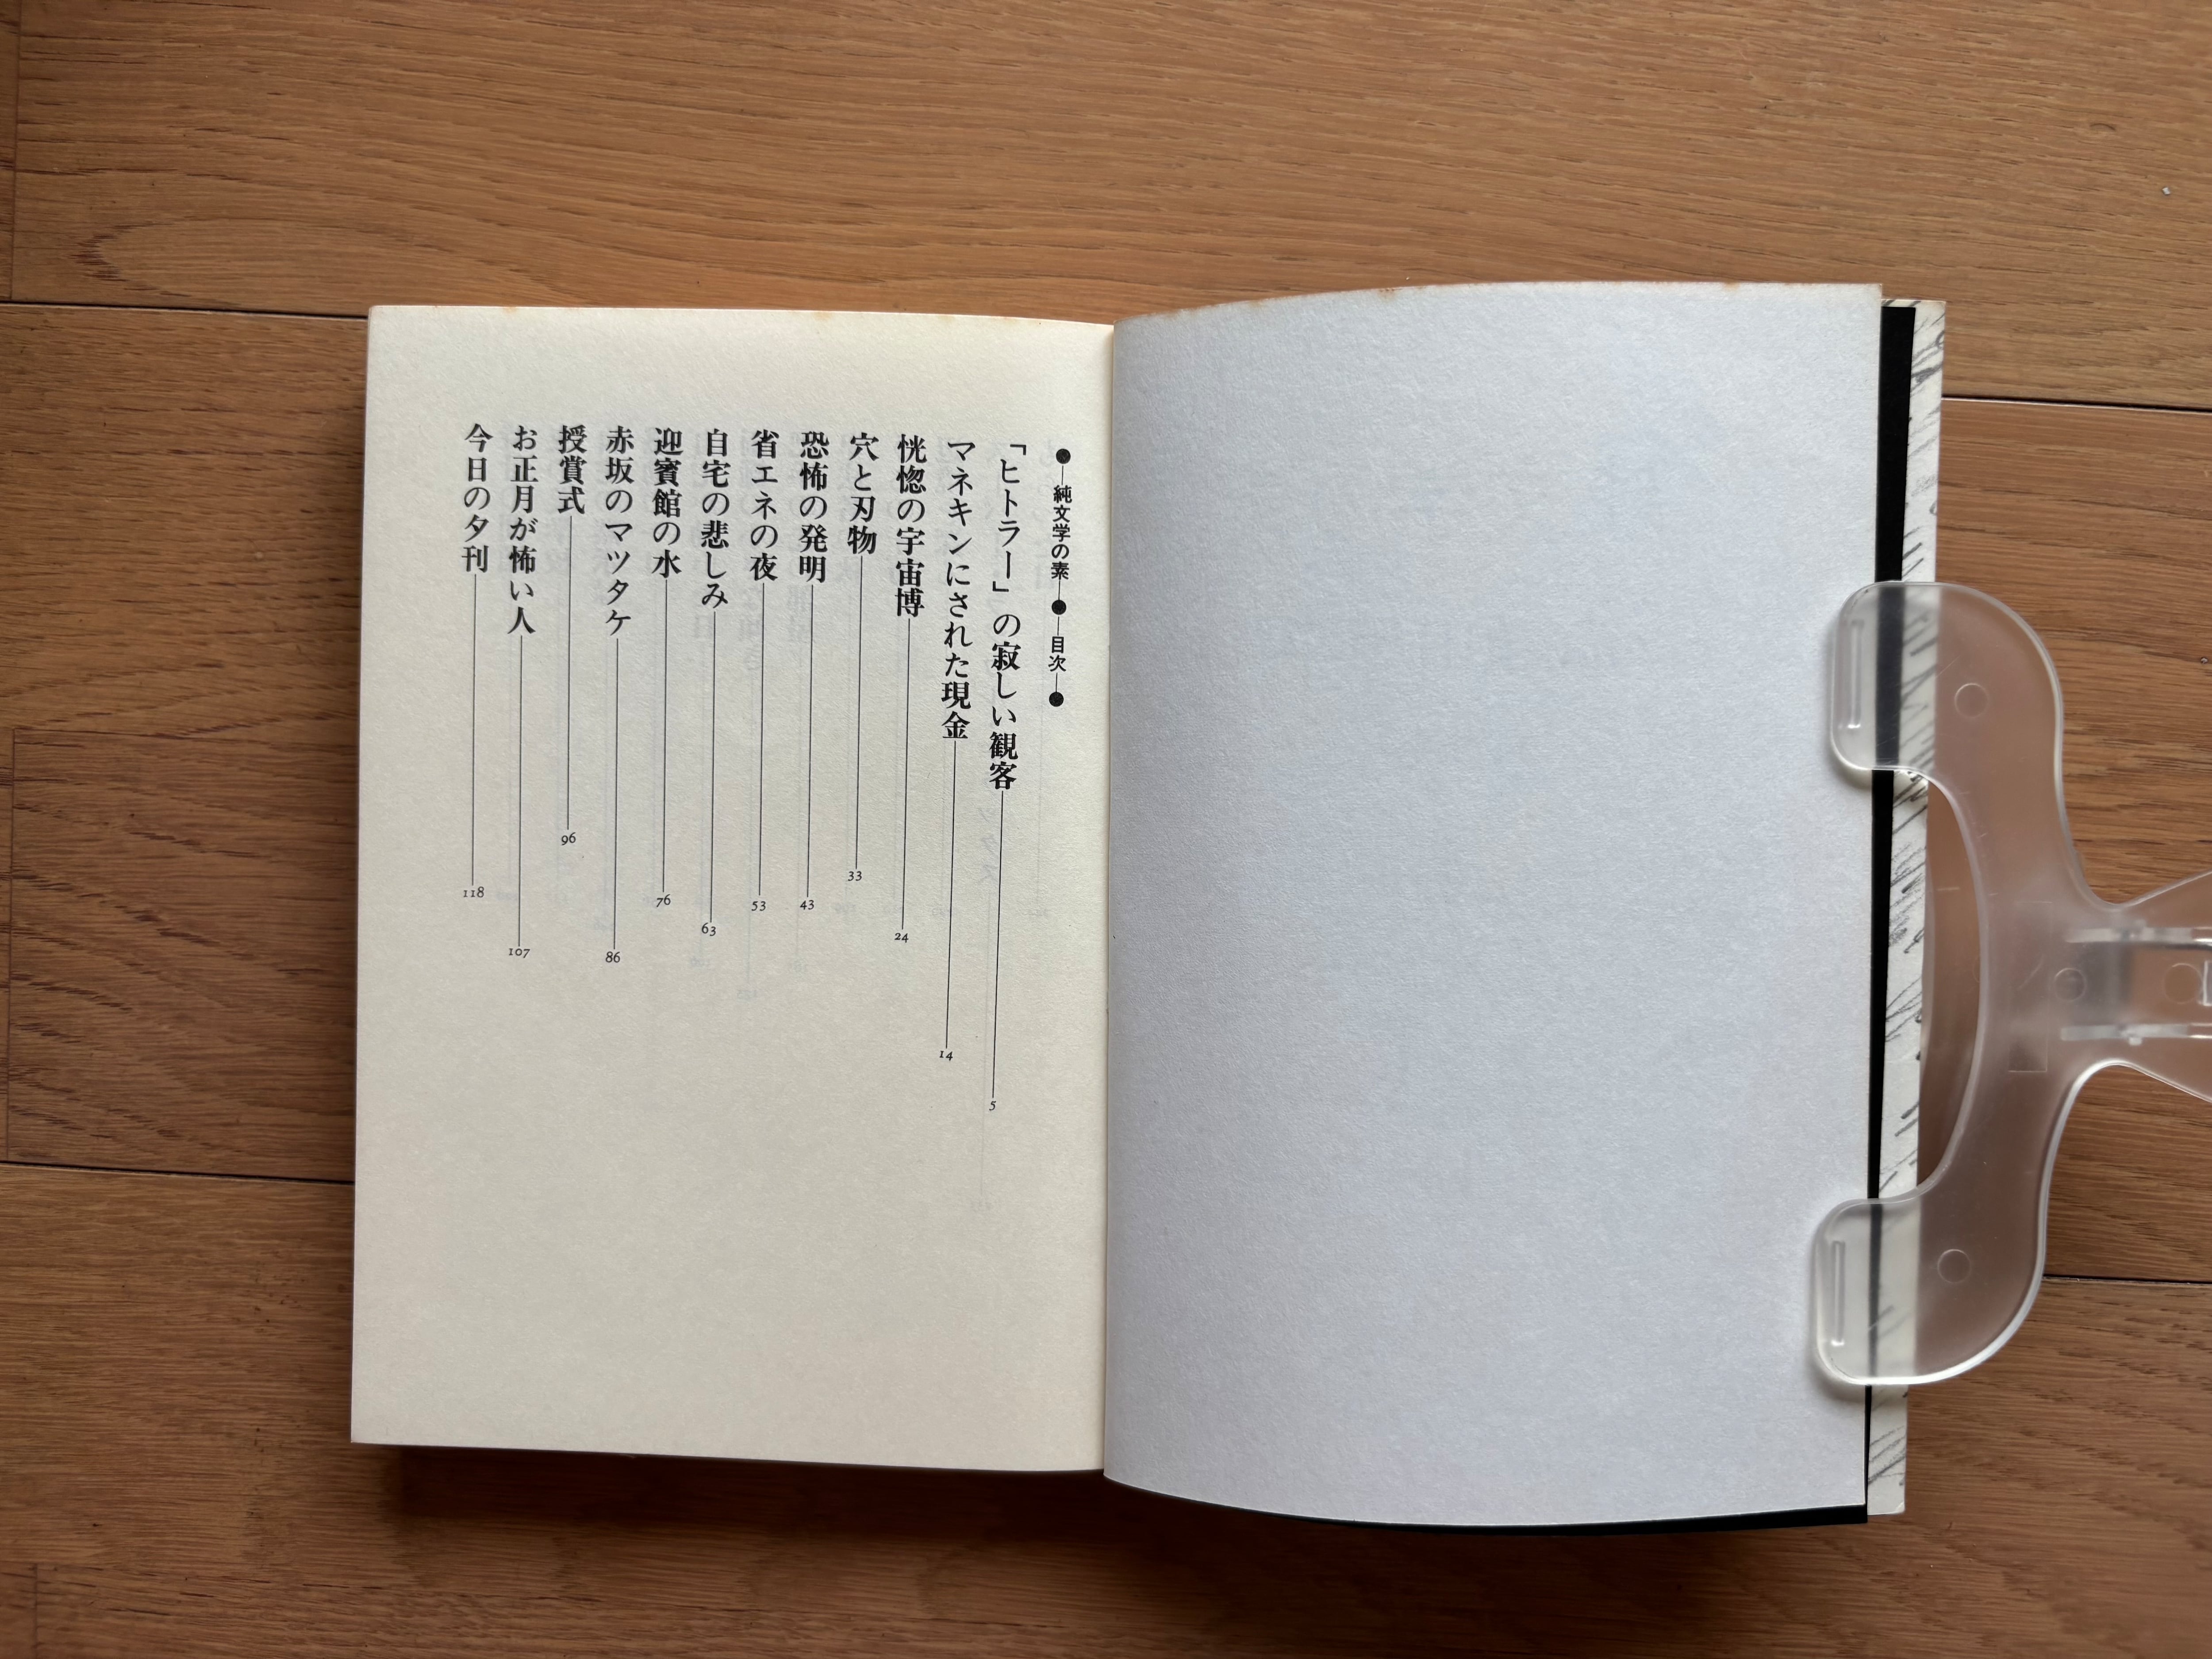 ●—純文学の素—●—目次—●
「ヒトラー」の寂しい観客 5
マネキンにされた現金 14
恍惚の宇宙博 24
穴と刃物 33
恐怖の発明 43
省エネの夜 53
自宅の悲しみ 63
迎賓館の水 76
赤坂のマツタケ 86
授賞式 96
お正月が怖い人 107
今日の夕刊 118